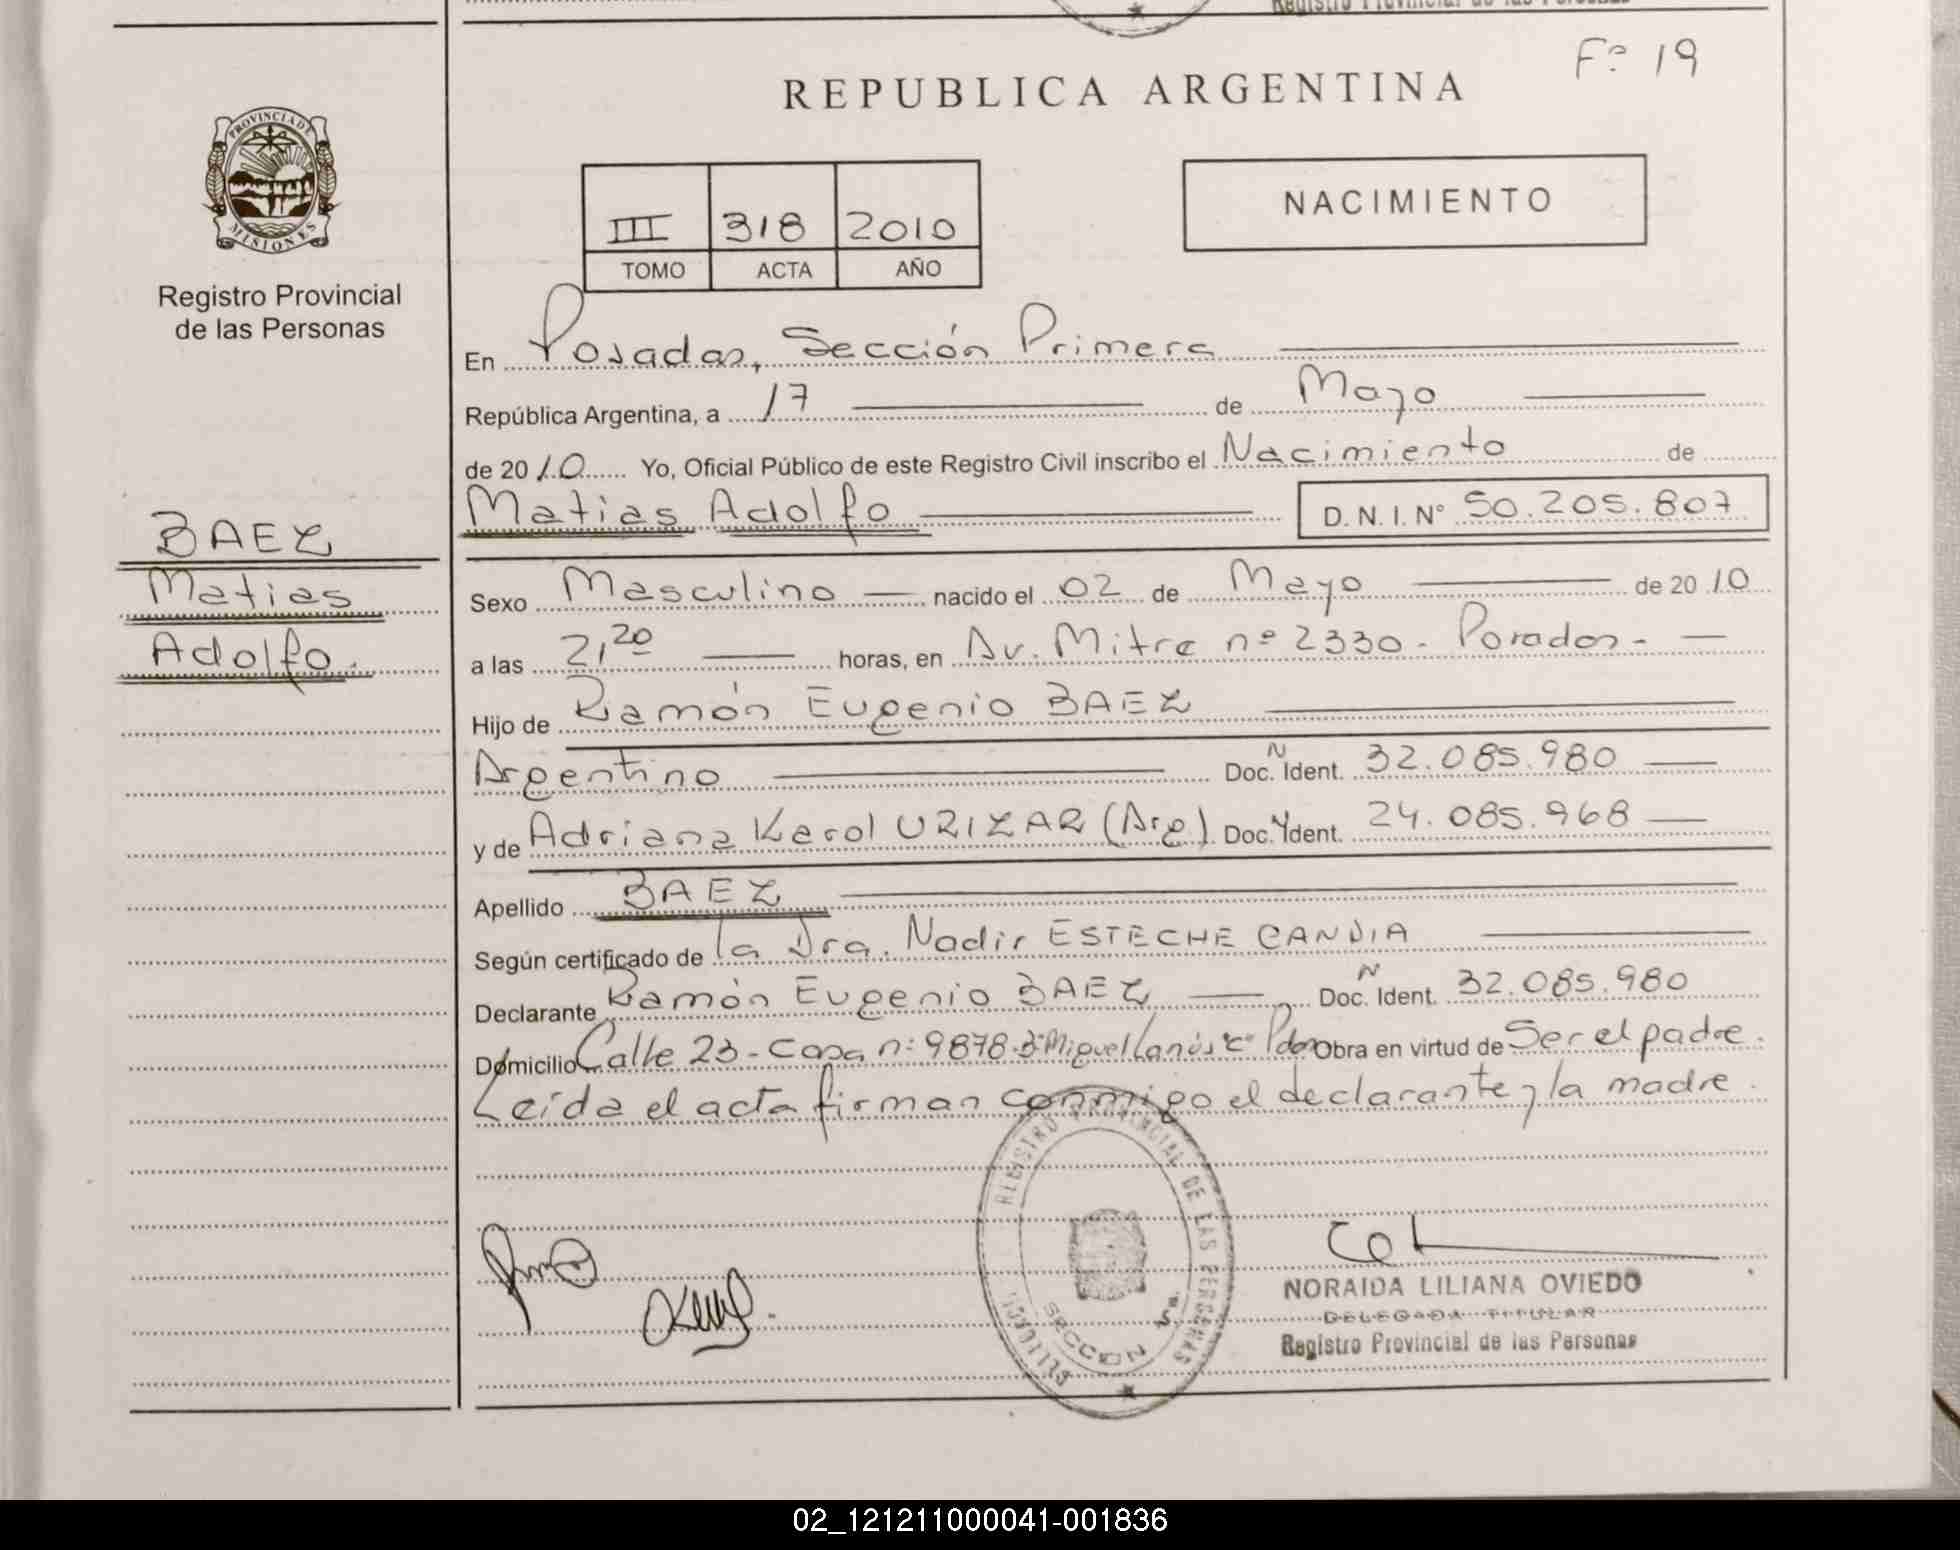 Registro Provincial de las Personas
Fº 19
REPUBLICA ARGENTINA
PROVINCIA DE
MISIONES
Registro Provincial
de las Personas
III 318 2010
TOMO ACTA AÑO
NACIMIENTO
En Posadas, Sección Primera
República Argentina, a 17 de Mayo
de 2010 Yo, Oficial Público de este Registro Civil inscribo el Nacimiento de
Matias Adolfo D. N. I. Nº 50.205.807
BAEZ
Matias
Adolfo.
Sexo Masculino nacido el 02 de Mayo de 2010
a las 21,20 horas, en Av. Mitre nº 2330 - Posadas -
Hijo de Ramón Eugenio BAEZ
Argentino Doc. N Ident. 32.085.980
y de Adriana Karol URIZAR (Arg.) Doc. Ident. 24.085.968
Apellido BAEZ
Según certificado de la Dra. Nadir ESTECHE CANDIA
Declarante Ramón Eugenio BAEZ Doc. N Ident. 32.085.980
Domicilio Calle 23 - Casa nº 9878 Bº Miguel Lanús "C" Pdas Obra en virtud de Ser el padre.
Leída el acta firman conmigo el declarante y la madre.
REGISTRO PROVINCIAL DE LAS PERSONAS
SECCION 1a.
NORAIDA LILIANA OVIEDO
DELEGADA TITULAR
Registro Provincial de las Personas
02_121211000041-001836